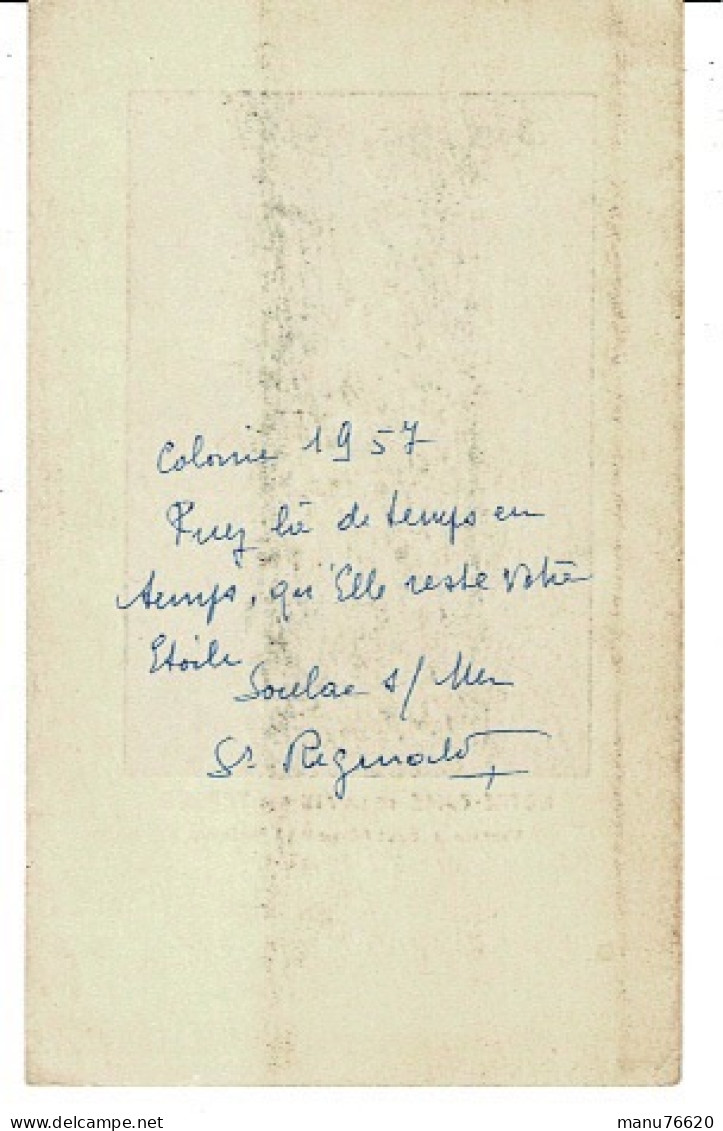 Colonie 1957
Priez là de temps en
temps, qu'Elle reste Votre
Etoile
Soulac s/ Mer
Sr Reginald
manu76620